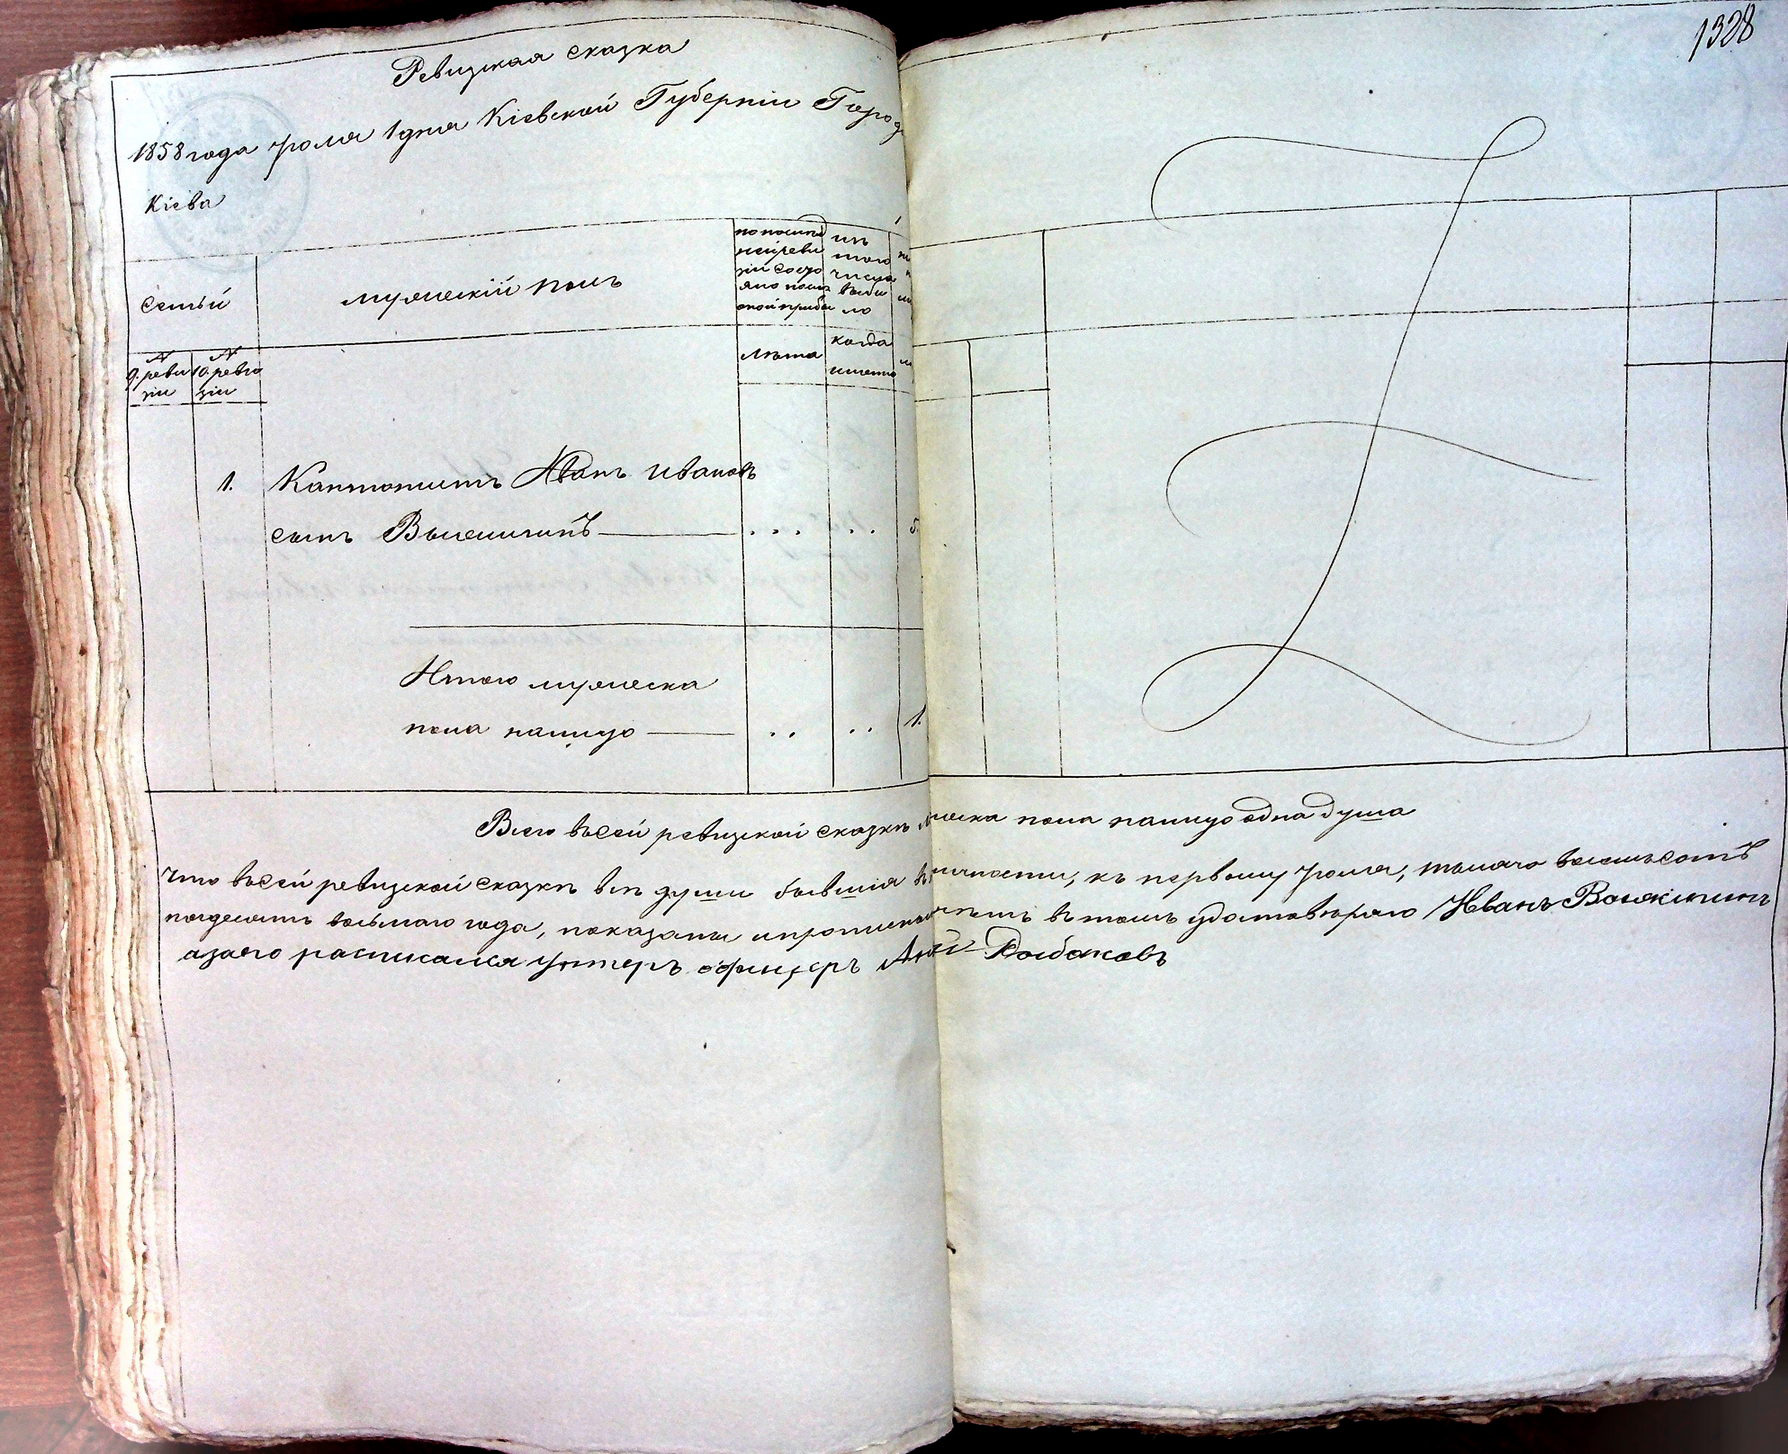 1328
Ревизкая сказка
1858 года Іюля 1 дня Кіевской Губерніи Города
Кіева
семьи
мужескій полъ
по послед
ней реви
зіи состо
яло
изъ
того
числа
выбы
ло
№
9. реви
зіи
№
10. реви
зіи
лѣта
когда
именно
1. Кантонистъ Иванъ Ивановъ
сынъ
Итого мужеска
пола налицо 1.
Всего въ сей ревизкой сказкѣ мужеска пола налицо одна душа
Что въ сей ревизкой сказкѣ всѣ души бывшія въ наличности, къ первому Іюля, тысяча восемьсотъ
пятдесятъ восьмаго года, показаны и пропис въ томъ удостовѣряю Иванъ
а за него расписался Унтеръ офицеръ